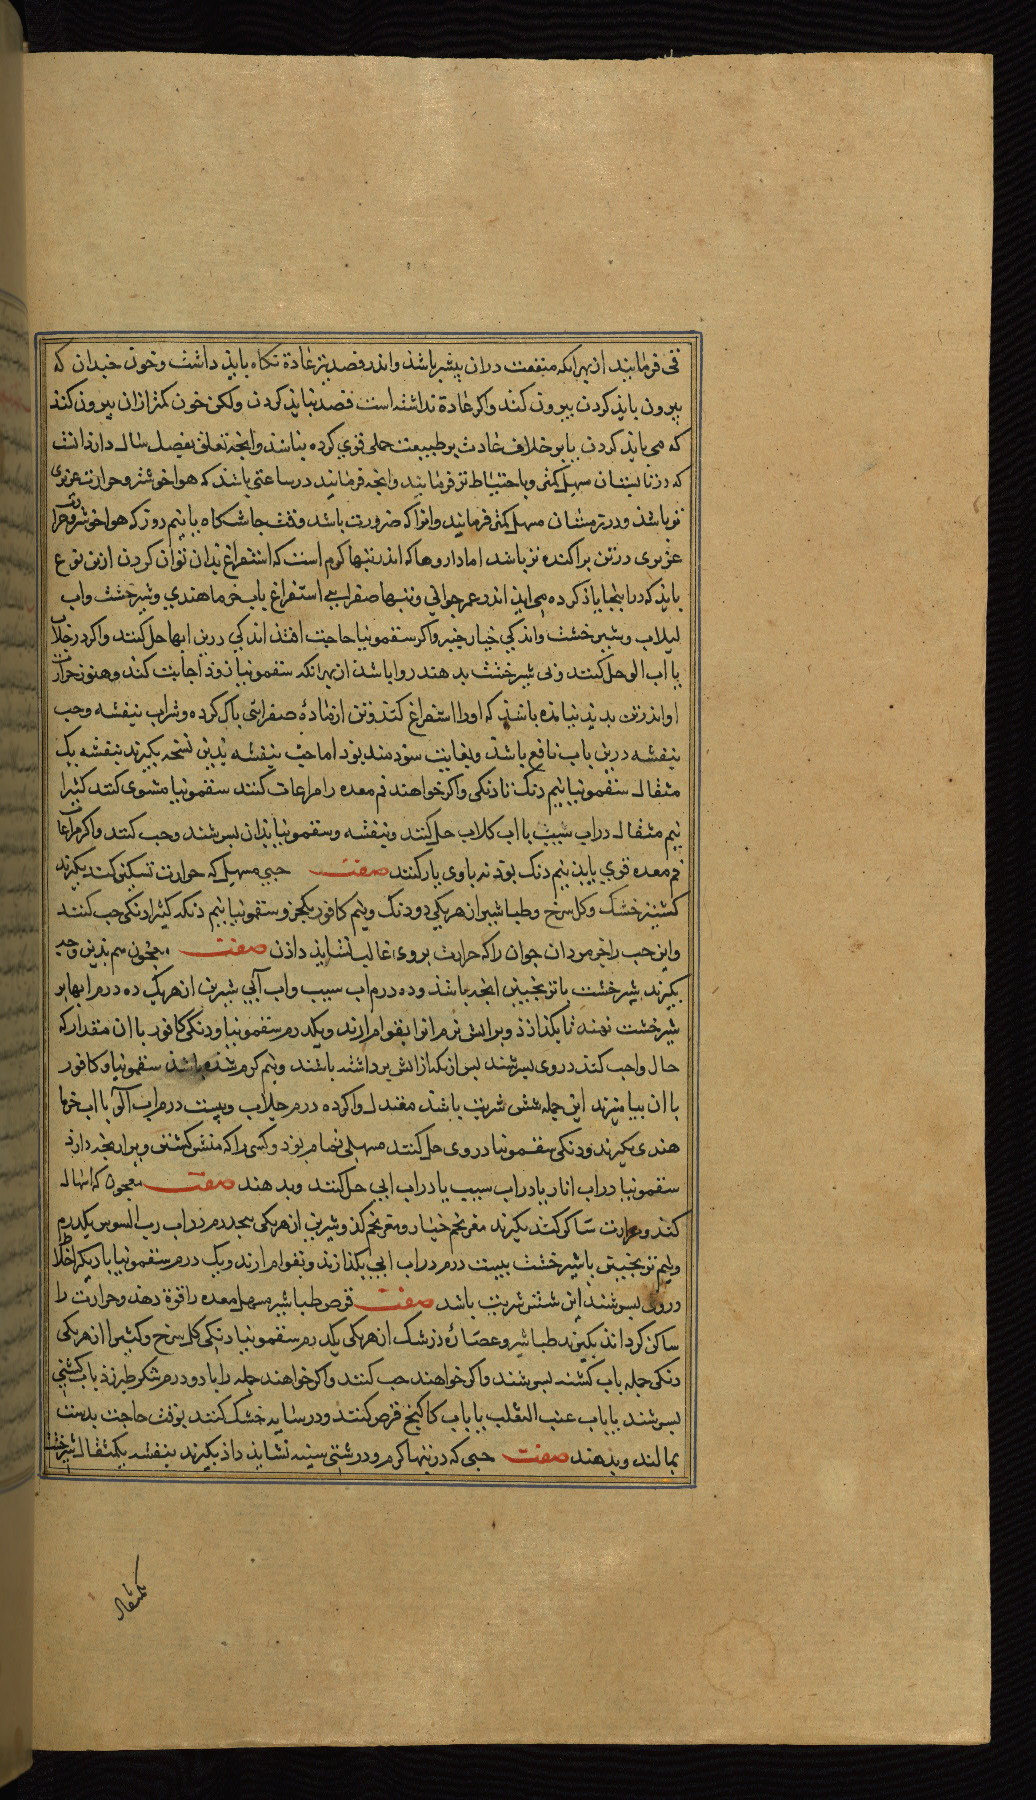 قی فرمایند از بهر آنکه منفعت در آن بیشتر باشذ و اندر فصد نیز عادة نکاه بایذ داشت و خون جندان که
بیرون بایذ کردن بیرون کنند و اکر عادة نداشته است فصد نبایذ کردن ولکن خون کمتر از آن بیرون کنند
که می بایذ کردن یا بر خلاف عادت بر طبیعت حملی قوی کرده نباشند و آنجه تعلق بفصل سال دارد آنست
که در تابستان مسهل کمتر و باحتیاط تر فرمایند و آنجه فرمایند در ساعتی باشد که هوا خوشتر و حرارت غریزی
تو باشذ و در زمستان مسهل کمتر فرمایند و آنرا که ضرورت باشد وقت جاشتکاه یا نیم روز که هوا خوشتر و حرارت
غریزی در تن براکنده تر باشد، اما داروها که اندر تبها کرم است که استفراغ بدان توان کردن ازین نوع
بایذ که در اینجا یاذ کرده می ایذ اندر عمر جوانی و تبها صفرایی استفراغ باب خرما هندی و شیرخشت و اب
لبلاب و شیرخشت و اندکی خیارجنبر و اکر سقمونیا حاجت افتذ اندکی درین ابها حل کنند و اکر در جلاب
یا اب الو حل کنند و بی شیرخشت بدهند روا باشد از بهر آنکه سقمونیا زوذ اجابت کند و هنوز حرارت
او اندر تن بدید نیامده باشذ که او را استفراغ کند و تن از مادهٔ صفرایی باک کرده و شراب بنفشه و حب
بنفشه درین باب نافع باشذ و بغایت سوذمند بوذ اما حب بنفشه بدین نسخه بکیرند بنفشه یک
مثقال سقمونیا نیم دنک تا دنکی و اکر خواهند فم معده را مراعات کنند سقمونیا مشوی کنند کتیرا
نیم مثقال در اب سیب یا اب کلاب حل کنند و بنفشه و سقمونیا بذان بسرشند و حب کنند و اکر مراعات
فم معده قوی بایذ نیم دنک بوذنه باوی یار کنند صفت حبی مسهل که حرارت تسکین کند بکیرند
کشنیز خشک و کل سرخ و طباشیر از هر یکی دو دنک و نیم کافور یکجزو سقمونیا نیم دنک کتیرا دنکی حب کنند
و این حب را جز مردان جوان را که حرارت بر وی غالب نشایذ داذن صفت معجون هم بدین وجه
بکیرند شیرخشت یا ترنجبین آنجه باشذ و ده درم اب سیب و اب آبی شیرین از هر یک ده درم ابها بر
شیرخشت نهند تا بکذازذ و بر آتش نرم آنرا بقوام آرند و یکدرم سقمونیا و دنکی کافور با آن مقدار که
حال واجب کند در وی بسرشند بس از آنک از آتش برداشته باشند و نیم کرم شده باشذ سقمونیا و کافور
با آن بیامیزند این جمله شش شربت باشد، معتدل و اکر ده درم جلاب و بیست درم اب آلو یا اب خرما
هندی بکیرند و دنکی سقمونیا در وی حل کنند مسهلی تمام بوذ و کسی را که منش کشتن و براز رنجه دارد
سقمونیا در اب انار یا در اب سیب یا در اب ابی حل کنند و بدهند صفت معجون که اسهال
کند و حرارت ساکن کند بکیرند مغز تخم خیار و مغز تخم کذو شیرین از هر یکی بنجدرم در اب رب السوس یکدرم
و نیم ترنجبین یا شیرخشت بیست درم در اب ابی بکذازند و بقوام آرند و یک درم سقمونیا با دیکر اخلاط
در وی بسرشند این شش شربت باشد صفت قرص طباشیر مسهل معده را قوة دهذ و حرارت را
ساکن کرداند بکیرند طباشیر و عصارهٔ زرشک از هر یکی یکدرم سقمونیا دنکی کل سرخ و کتیرا از هر یکی
دنکی جمله باب کشنه بسرشند و اکر خواهند حب کنند و اکر خواهند جمله را با دو درم شکر طبرزذ باب کشنی
بسرشند یا باب عنب الثعلب یا باب کاکنج قرص کنند و در سایه خشک کنند بوقت حاجت بدست
بمالند و بدهند صفت حبی که در تبها کرم و درشتی سینه نشایذ داذ بکیرند بنفشه یکمثقال شیرخشت
یکمثقال